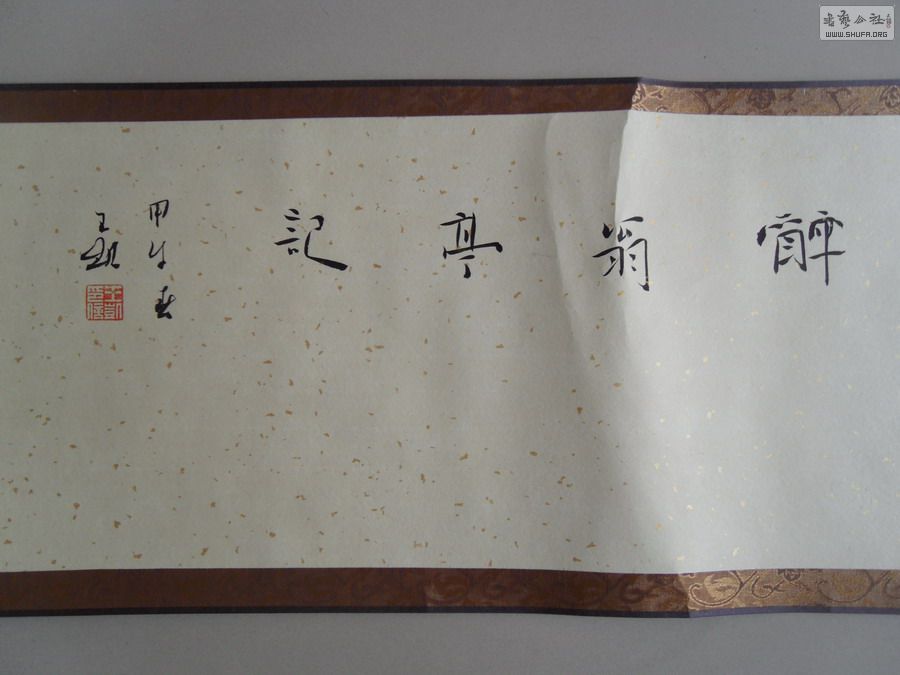 醉翁亭記
甲午春
王凱
書藝公社
WWW.SHUFA.ORG